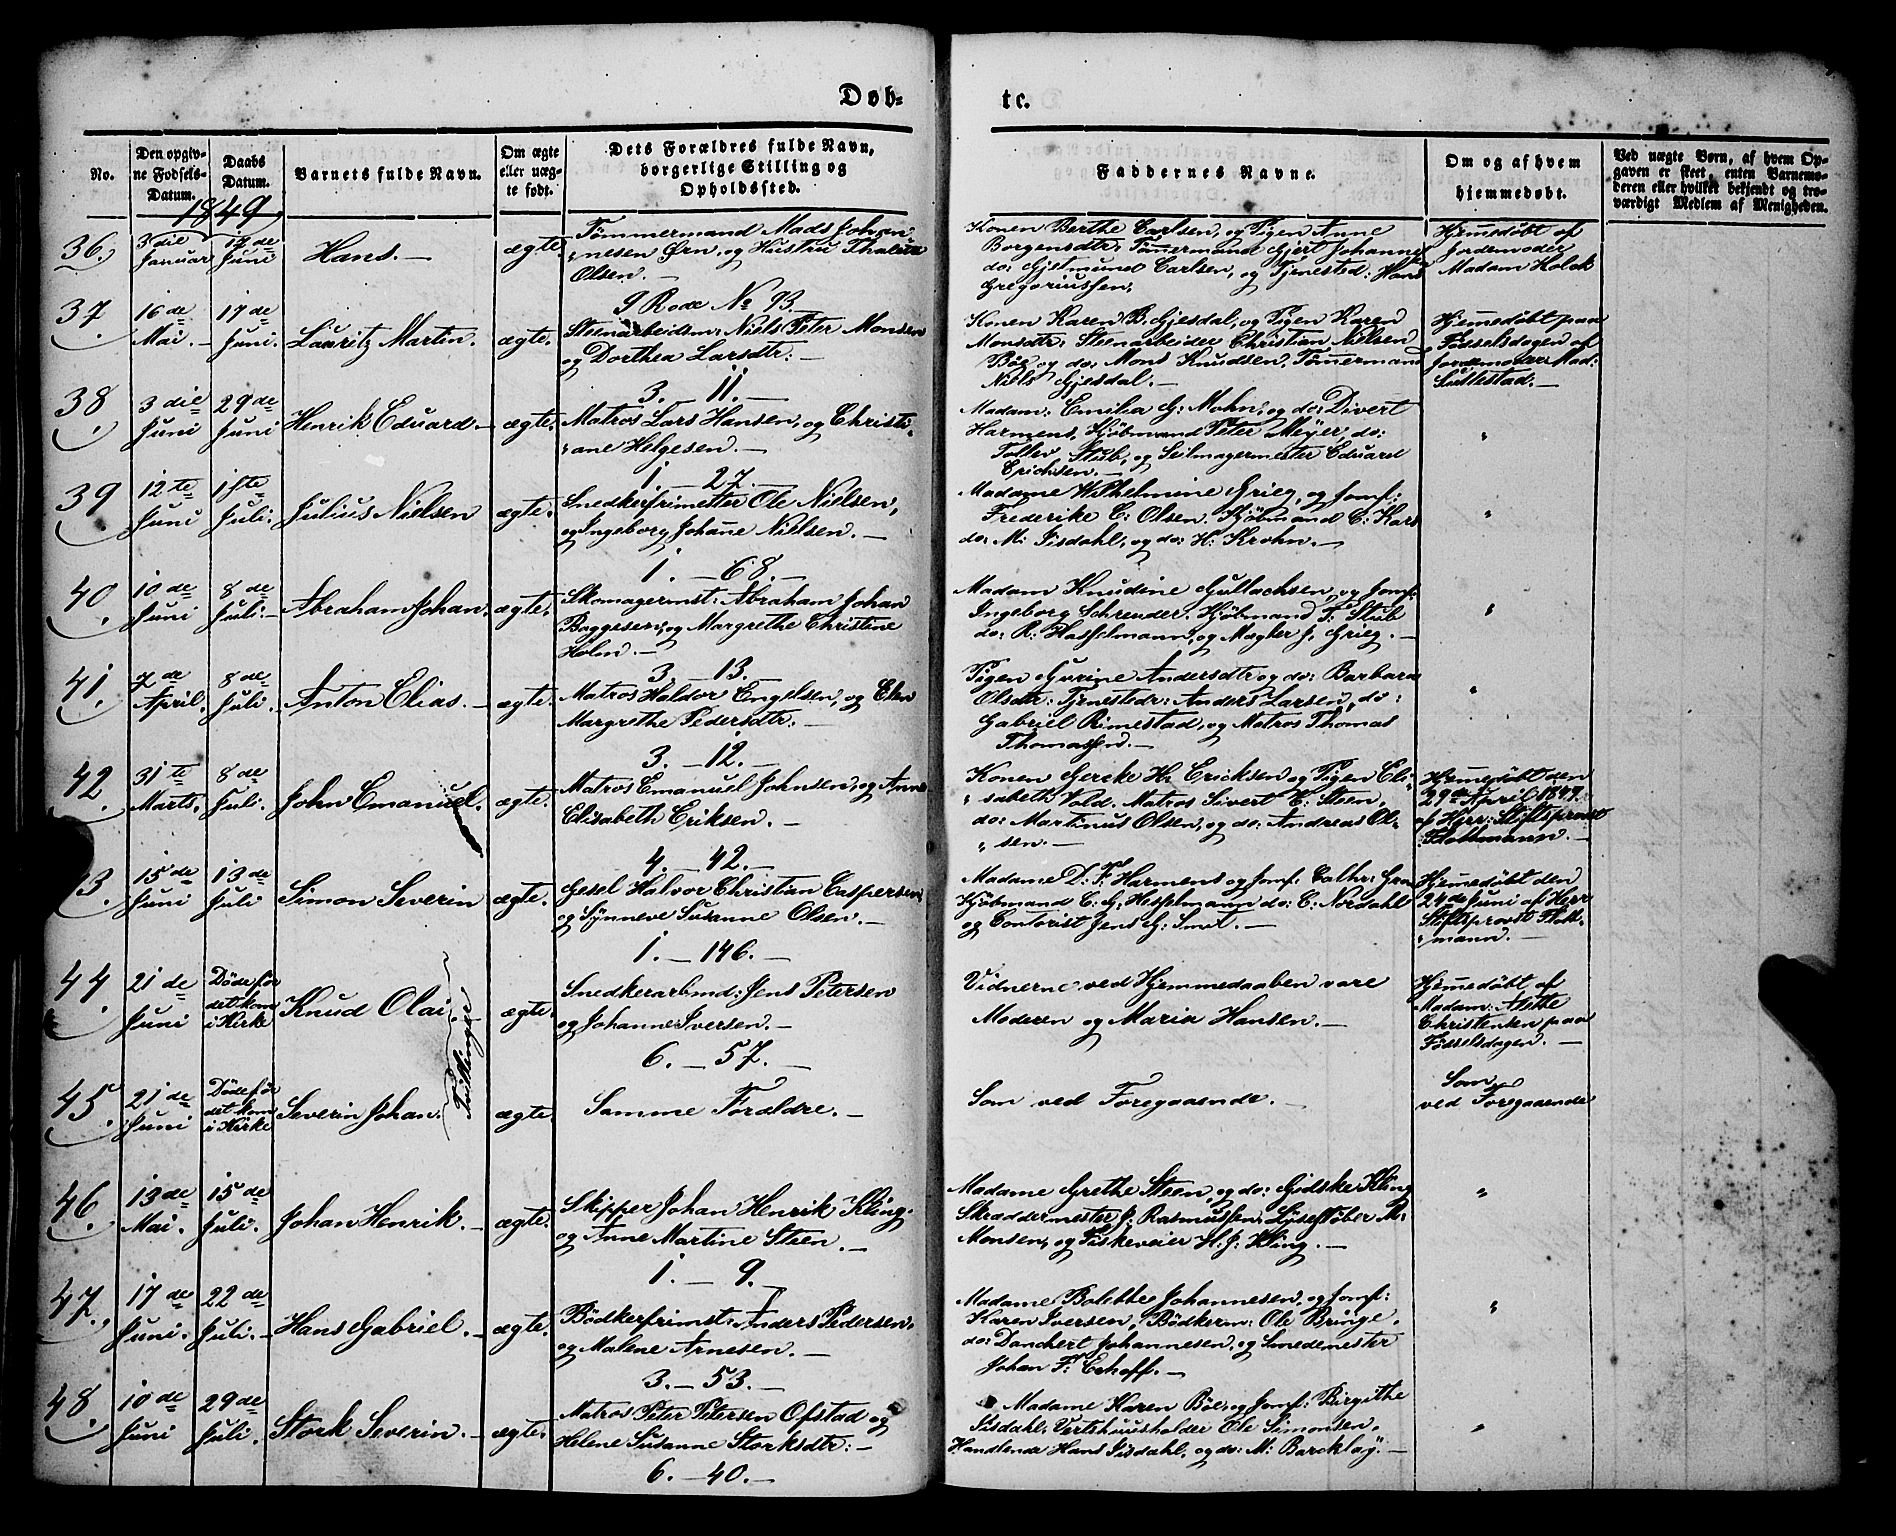 Døb=
te.
No.
Den opgiv-
ne Fødsels-
Datum.
Daabs
Datum.
Barnets fulde Navn.
Om ægte
eller uæg-
te født.
Dets Forældres fulde Navn,
borgerlige Stilling og
Opholdssted.
Faddernes Navne.
Om og af hvem
hjemmedøbt.
Ved uægte Børn, af hvem Op-
gaven er skeet, enten Barnemo-
deren eller hvilket bekjendt og tro-
værdigt Medlem af Menigheden.
1849.
36.
3die
Januar
17de
Juni
Hans. —
ægte.
Tømmermand Mads Johan
nesen Ørn, og Hustru Thalette
Olsen. —
9 Rode No 93
Konen Berthe Carlsen, og Pigen Anne
Borgensdtr: Tømermand Gjert Johannes
do: Gjetmund Carlsen, og Tjenested: Hans
Gregoriussen,
Hjemedøbt af
Jordemoder
Madam Holck
37
16de
Mai. —
17de
Juni.
Lauritz Martin.
ægte.
Steenarbeider: Niels Peter Monsen
og Dorthea Larsdtr: —
3. 11. —
Konen Karen B. Gjesdal, og Pigen Karen
Monsdtr: Steenarbeider Christian Nielsen
Bøe og do: Mons Knudsen, Tømermand
Niels Gjesdal. —
Hjemedøbt paa
Fødselsdagen af
Jordemoder Mad:
Sullestad. —
38.
3die
Juni
29de
Juni
Henrik Eduard. —
ægte.
Matros Lars Hansen, og Christi-
ane Helgesen. —
1. — 27. —
Madam: Emilia G: Mohn, og do: Divert
Harmens, Kjøbmand Peter Meyer, do:
Tollev Stub, og Seilmagermester Eduard
Erichsen. —
"
39
12te
Juni
1ste
Juli.
Julius Nielsen
ægte.
Snedkersvimester Ole Nielsen,
og Ingeborg Johane Nilsen. —
1. — 68. —
Madame Wilhelmine Grieg, og Jomf:
Frederike C: Olsen. Kjøbmand C: Kars
do: M: Sisdahl, og do: H: Krohn. —
"
40.
10de
Juni
8de
Juli. —
Abraham Johan.
ægte.
Skomagermst: Abraham Johan
Baggesen, og Margrethe Christine
Holm. —
3. — 13. —
Madam Knudine Gullachsen, og Jomf:
Ingeborg Schreuder. Kjøbmand F: Stub
do: R: Hasselmann, og Mægler J. Grieg. —
"
41.
7de
April.
8de
Juli. —
Anton Elias. —
ægte.
Matros Haldor Engelsen, og Elen
Margrethe Pedersdtr: —
3. — 12. —
Pigen Gurine Andersdtr og do: Barbara
Olsdtr: Tjenestedr: Anders Larsen, do:
Gabriel Rimestad, og Matros Thomas
Thomassen. —
"
42
31te
Marts,
8de
Juli. —
John Emanuel.
ægte.
Matros Emanuel Johnsen, og Anne
Elisabeth Eriksen. —
4. — 42. —
Konen Gerche H. Ericksen og Pigen Eli-
sabeth Vold. Matros Sivert E: Steen,
do: Martinus Olsen, og do: Andreas Ol-
sen. —
Hjemedøbt den
29de April 1849.
af Hrr: Stiftsprovst
Flottmann. —
3.
15de
Juni
13de
Juli
Simon Severin
ægte.
Gesel Halvor Christian Caspersen
og Synneve Susanne Olsen. —
1. — 146. —
Madame D: F: Harmens og Jomf: Cathr: Gra
Kjøbmand C: G: Hesselmann do: C: Nordahl
og Contorist Jens G: Smit. —
Hjemedøbt den
24de Juni af Herr
Stiftsprovst Flott-
mann. —
44.
21de
Juni
Døde før
det kom
i Kirke
Knud Olai.
Tvillinger
ægte.
Snedkerarbmd: Jens Petersen
og Johanne Iversen. —
6. — 57. —
Vidnerne ved Hjemmedaaben vare
Moderen og Maria Hansen. —
Hjemedøbt af
Madam: Alethe
Christensen paa
Fødselsdagen. —
45.
21de
Juni
Døde før
det kom
i Kirke
Severin Johan.
ægte.
Samme Forældre. —
Som ved Foregaaende. —
Som
ved Foregaaende
46.
13de
Mai.
15de
Juli.
Johan Henrik. —
ægte.
Skipper Johan Henrik Kling.
og Anne Martine Steen. —
1. — 9. —
Madame Grethe Steen, og do: Gidske Kling
Skræddermester J. Rasmussen, Lysestøber M:
Monsen, og Fiskeveier H. J: Kling. —
"
47.
17de
Juni.
22de
Juli. —
Hans Gabriel. —
ægte.
Bødkersvimst: Anders Pedersen,
og Malene Arnesen. —
3. — 53. —
Madame Bolette Johannesen, og Jomf:
Karen Iversen, Bødkerm: Ole Bringe,
do: Danchert Johannesen, og Smedemester
Johan F: Echoff. —
"
48.
10de
Juni
29de
Juli.
Stork Severin. —
ægte.
Matros Peter Petersen Ofstad og
Helene Susanne Storksdtr: —
6. — 40. —
Madame Karen Bøe, og Jomf: Birgithe
Sisdahl, Vertshuusholder Ole Simonsen,
Handlende Hans Sisdahl, og do: M: Barcklay: —
"